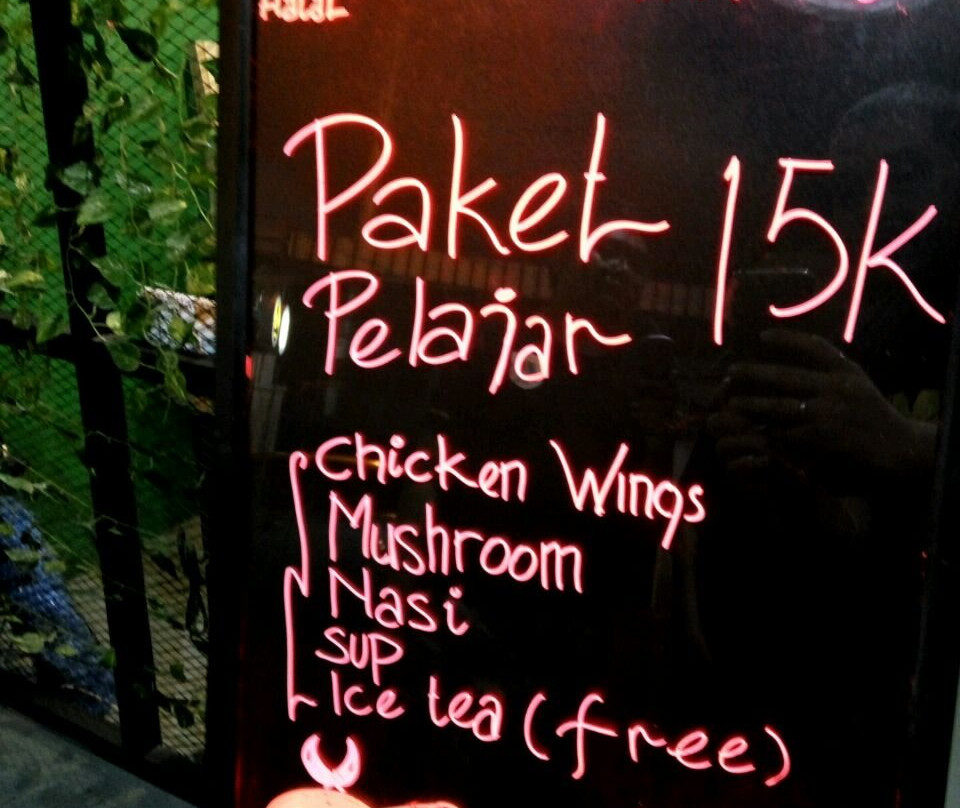 Halal
Paket 15K
Pelajar
Chicken Wings
Mushroom
Nasi
sup
Ice tea (free)